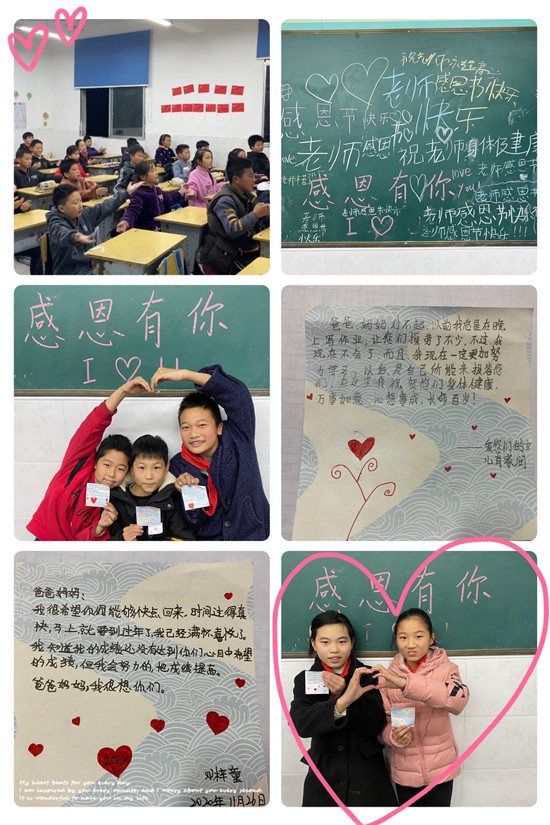 祝老师永远高心
老师感恩节快乐
感恩节快乐
快乐
老师感恩
祝老师身体健康
感恩有你
love you!
老师感恩节快乐
老师感恩节快乐
老师感恩节快乐
I ♡
老师感恩节快乐
老师感恩节快乐!!!
感恩有你
I ♡ U
爸爸,妈妈对不起,以前我总是在晚
上写作业,让您们操劳了不少,不过,我
现在不会了,而且,我现在一定更加努
力学习,以后,尽自己所能来报答您
们,在这里我祝,你您们身体健康,
万事如意,心想事成,长命百岁!
——爱您们的女
儿肖家闰
爸爸妈妈:
我很希望你们能够快点回来,时间过得真
快,马上就要到过年了,我已经满怀喜悦了。
我知道我的成绩还没有达到你们心目中希望
的成绩,但我会努力的,把成绩提高。
爸爸妈妈,我很想你们。
2020年11月26日
My heart beats for you every day.
I am inspired by you every minute, and I worry about you every second.
It is wonderful to have you in my life.
感恩有你